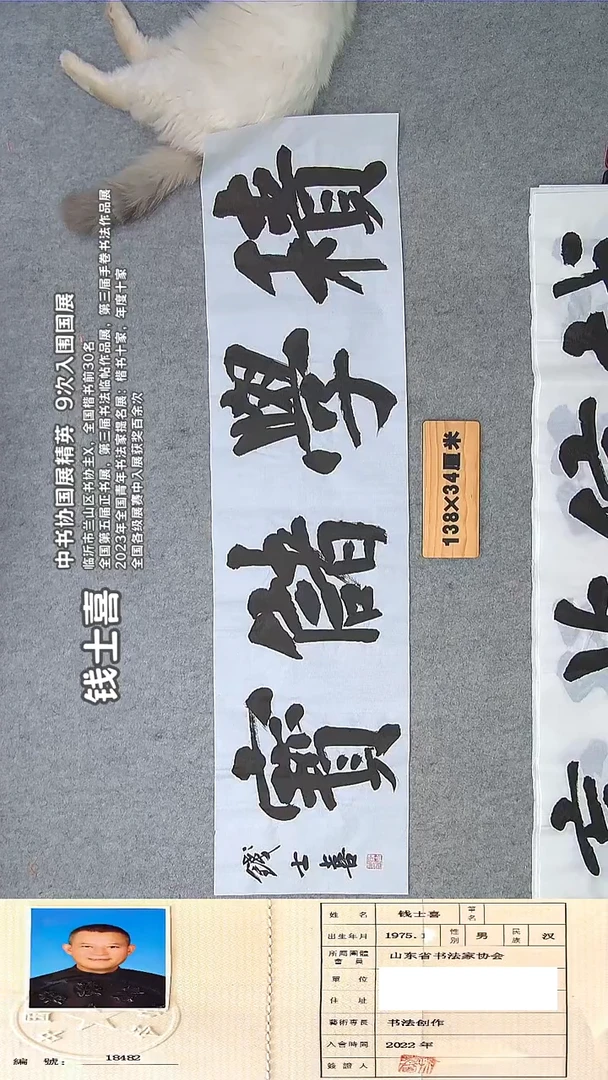 钱士喜
中书协国展精英 9次入围国展
临沂市兰山区书协主X、全国楷书前30名
全国第五届正书展，第三届书法临帖作品展，第三届手卷书法作品展
2023年全国青年书法家提名展：楷书十家，年度十家
全国各级展赛中入展获奖百余次
積學儲寶
錢士喜
138×34厘米
編 號： 18482
姓 名 钱士喜 筆名
出生年月 1975. 性別 男 民族 汉
所屬團體會員 山东省书法家协会
單 位
住 址
藝術專長 书法创作
入會時間 2022 年
簽證人